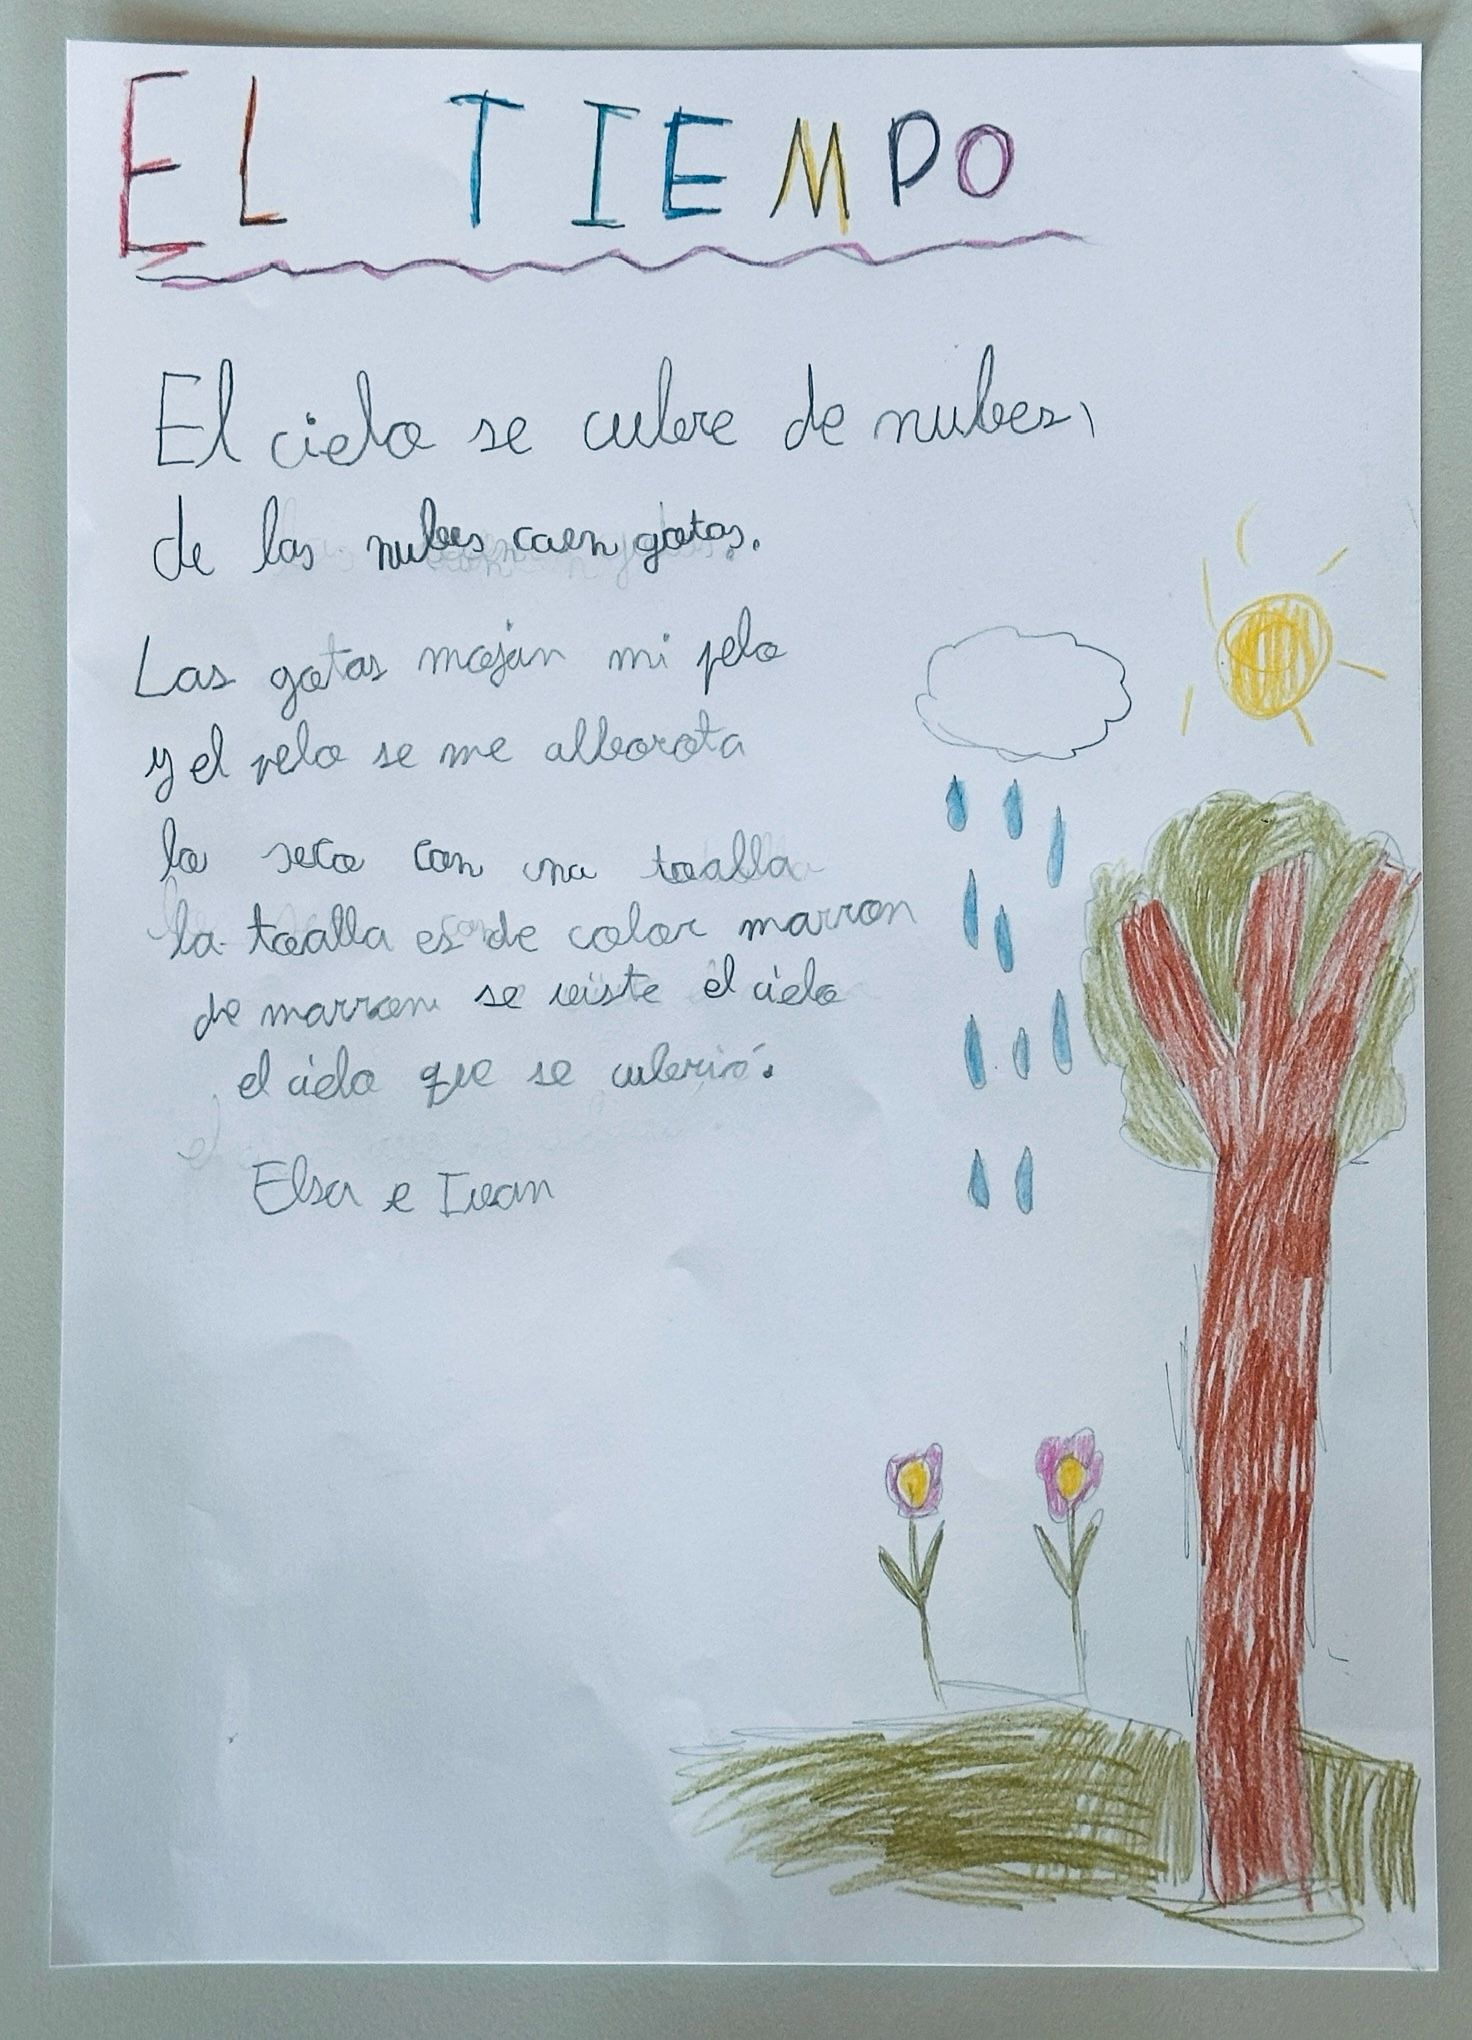 EL TIEMPO
El cielo se cubre de nubes,
de las nubes caen gotas.
Las gotas mojan mi pelo
y el pelo se me alborota
lo seco con una toalla
la toalla es de color marron
de marron se viste el cielo
el cielo que se cubrió.
Elsa e Ivan